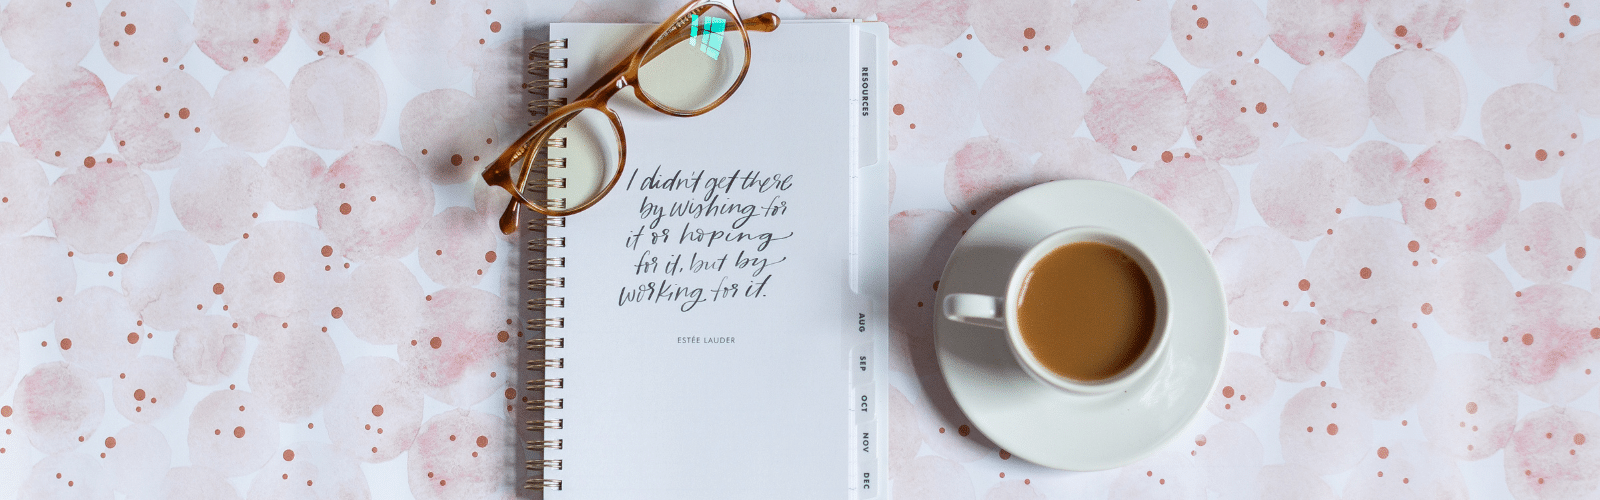 I didn't get there
by wishing for
it or hoping
for it, but by
working for it.
ESTÉE LAUDER
RESOURCES
AUG
SEP
OCT
NOV
DEC